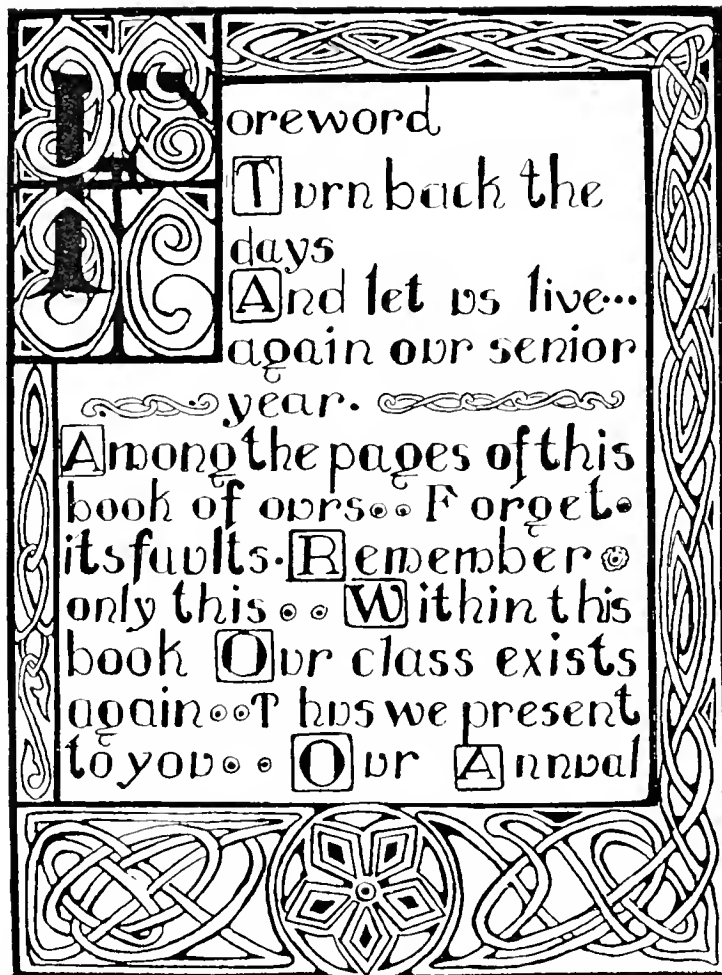 Foreword
Turn back the
days
And let us live...
again our senior
year.
Among the pages of this
book of ours.. Forget.
its faults. Remember
only this .. Within this
book Our class exists
again..Thus we present
to you.. Our Annual